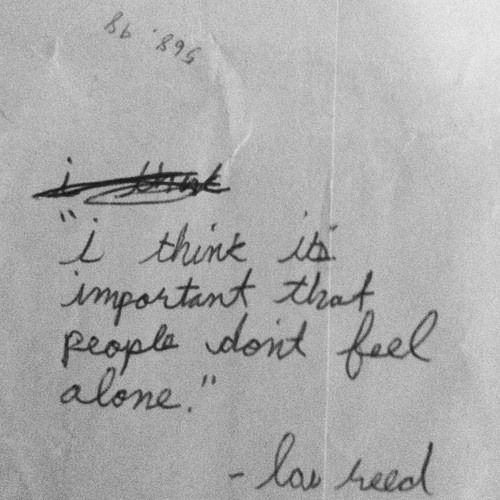 568. 98
i think
"i think its
important that
people don't feel
alone."
- lou reed